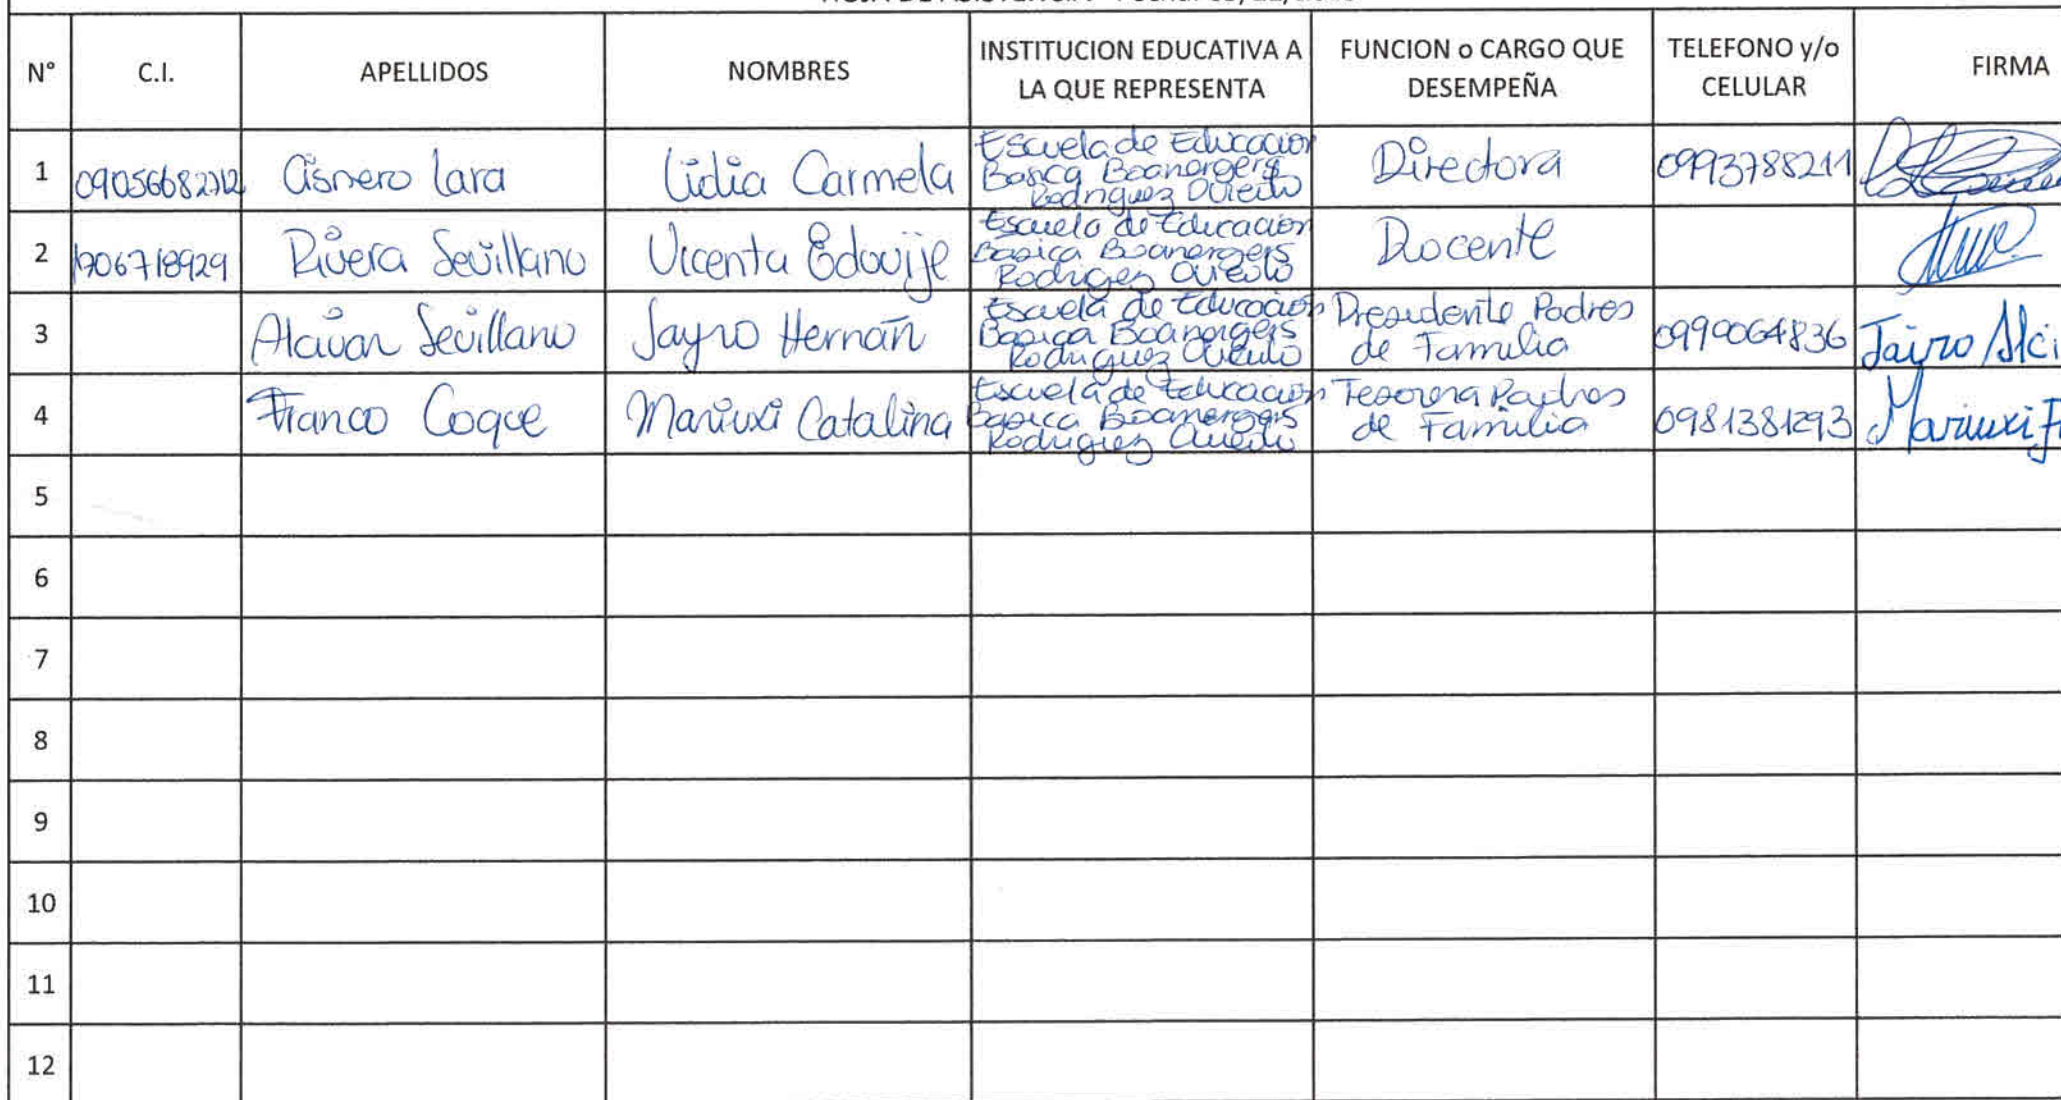 N° C.I. APELLIDOS NOMBRES INSTITUCION EDUCATIVA A LA QUE REPRESENTA FUNCION o CARGO QUE DESEMPEÑA TELEFONO y/o CELULAR FIRMA
1 Cisnero Lara Lidia Carmela Escuela de Educacion Basica Boanergers Rodriguez Oviedo Directora 0993788211
2 1706718929 Rivera Sevillano Vicenta Edovije Escuela de Educacion Basica Boanergers Rodriges Oviedo Docente
3 Alcivar Sevillano Jayro Hernán Escuela de Educacion Basica Boanergers Rodriguez Oviedo Presidente Padres de Familia 0990064836 Jairo Alci
4 Franco Coque Mariuxi Catalina Escuela de Educacion Basica Boanergers Rodriguez Oviedo Tesorera Padres de Familia 0981381293 Mariuxi F
5
6
7
8
9
10
11
12